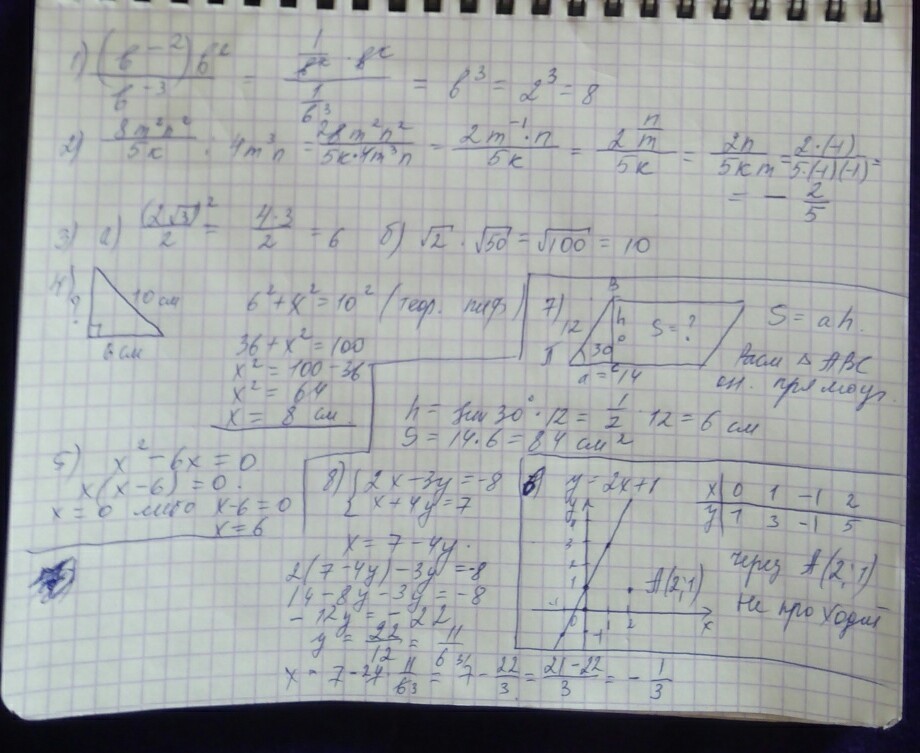 1) (b^-2)b^2 / b^-3 = (1/b^2 · b^2) / (1/b^3) = b^3 = 2^3 = 8
2) 8m^2n^2 / 5k · 4m^3n = 28m^2n^2 / 5k·4m^3n = 2m^-1·n / 5k = 2 n/m / 5k = 2n / 5km = 2·(-1) / 5·(-1)(-1) =
= - 2/5
3) а) (2√3)^2 / 2 = 4·3 / 2 = 6 б) √2 · √50 = √100 = 10
4) ? 10 см 6 см
6^2 + x^2 = 10^2 (теор. пиф)
36 + x^2 = 100
x^2 = 100 - 36
x^2 = 64
x = 8 см
7) B 12 h S = ? 30° a = 14
S = ah.
Расм △ ABC
он. прямоуг.
h = sin 30° · 12 = 1/2 · 12 = 6 см
S = 14 · 6 = 84 см^2
5) x^2 - 6x = 0
x(x-6) = 0.
x = 0 либо x-6 = 0
x = 6
8) { 2x - 3y = -8
x + 4y = 7
x = 7 - 4y.
2(7-4y) - 3y = -8
14 - 8y - 3y = -8
- 12y = - 22
y = 22/12 = 11/6
x = 7 - 24 · 11/63 = 7 - 22/3 = 21-22 / 3 = - 1/3
6) y = 2x+1
x 0 1 -1 2
y 1 3 -1 5
y 3 2 1 0 -1 1 2 x
A(2;1)
через A(2;1)
не проходит